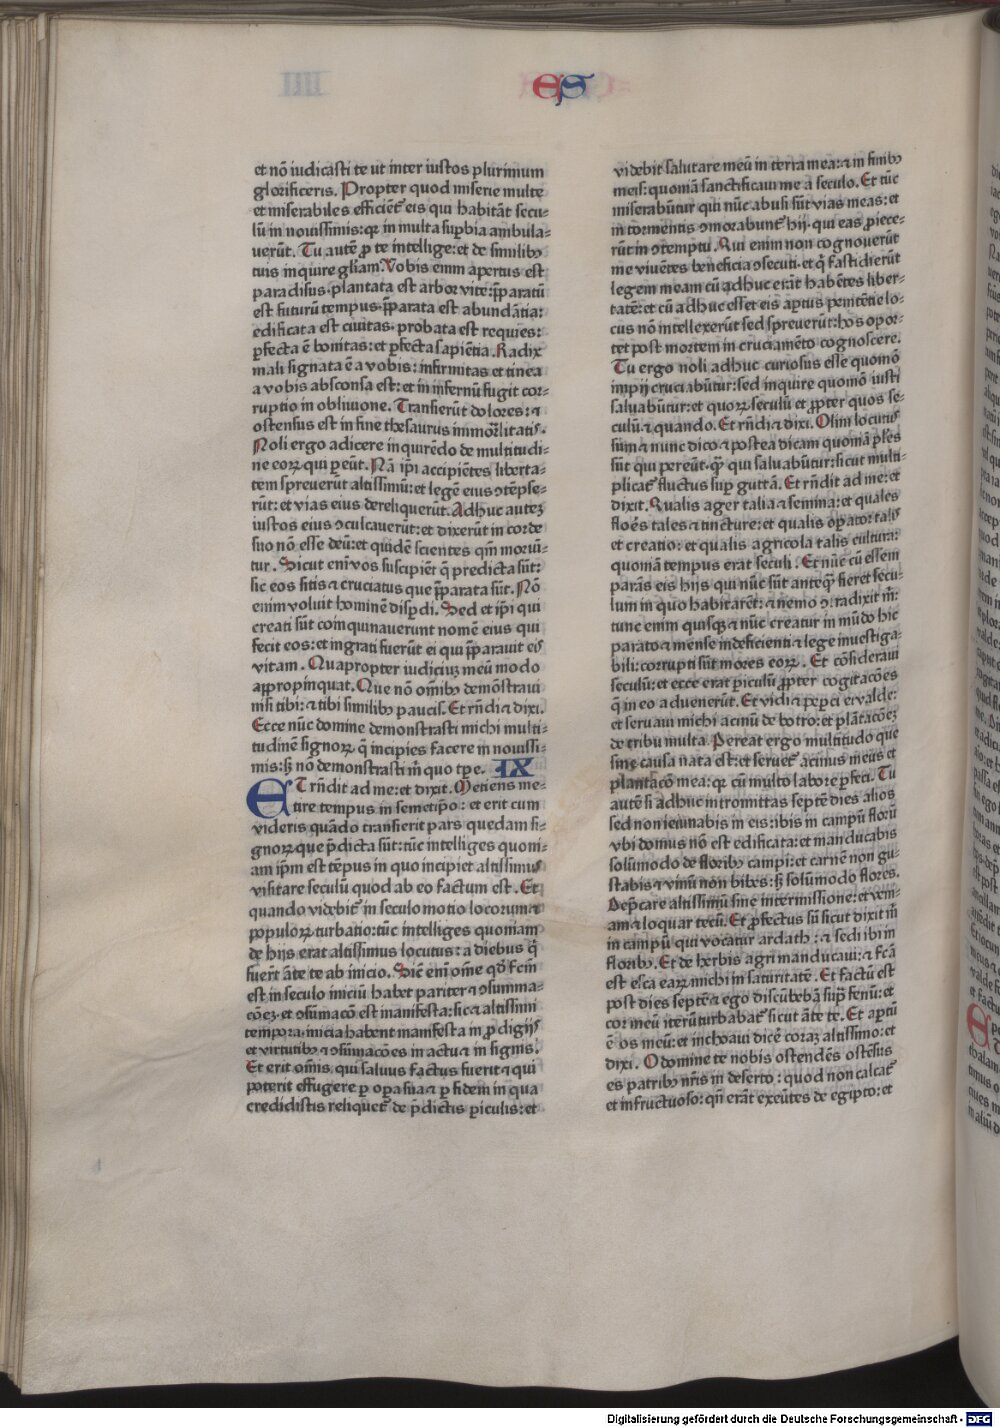 ES
et nō iudicasti te ut inter iustos plurimum
glorificeris. Propter quod miserie multe
et miserabiles efficiēt᷑ eis qui habitāt secu-
lū in nouissimis: qr in multa supbia ambula-
uerūt. Tu autē p te intellige: et de similib9
tuis inquire gl̄iam. Vobis enim apertus est
paradisus. plantata est arbor vite: ꝓparatū
est futurū tempus. ꝓparata est abundātia:
edificata est ciuitas. probata est requies:
ꝑfecta ē bonitas: et ꝑfecta sapiētia. Radix
mali signata ē a vobis: infirmitas et tinea
a vobis absconsa est: et in infernū fugit cor-
ruptio in obliuione. Transierūt dolores: ⁊
ostensus est in fine thesaurus immōrlitatis.
Noli ergo adicere inquirēdo de multitudi-
ne eorꝝ qui ꝑeūt. Nā ip̄i accipiētes liberta-
tem spreuerūt altissimū: et legē eius ↄtēpse-
rūt: et vias eius dereliquerūt. Adhuc autez
iustos eius ↄculcauerūt: et dixerūt in corde
suo nō esse deū: et quidē scientes qm̄ moriū-
tur. Sicut eni vos suscipiēt q̄ predicta sūt:
sic eos sitis ⁊ cruciatus que ꝓparata sūt. Nō
enim voluit hominē disꝑdi. Sed et ip̄i qui
creati sūt coinquinauerunt nomē eius qui
fecit eos: et ingrati fuerūt ei qui ꝓparauit eis
vitam. Quapropter iudiciuz meū modo
appropinquat. Que nō om̄ib9 demōstraui
nisi tibi: ⁊ tibi similib9 paucis. Et rn̄di ⁊ dixi.
Ecce nūc domine demonstrasti michi multi-
tudinē signorꝝ q̄ incipies facere in nouissi-
mis: sꝫ nō demonstrasti m̄ quo tꝑe. IX
ET rn̄dit ad me: et dixit. Metiens me-
tire tempus in semetip̄o: et erit cum
videris quādo transierit pars quedam si-
gnorꝝ que p̄dicta sūt: tūc intelliges quoni-
am ip̄m est tēpus in quo incipiet altissimus
visitare seculū quod ab eo factum est. Et
quando videbit᷑ in seculo motio locorum ⁊
populorꝝ turbatio: tūc intelliges quoniam
de hijs erat altissimus locutus: a diebus q̄
fuerūt āte te ab inicio. Sic̄ eni om̄e qd̓ fc̄m
est in seculo iniciū habet pariter ⁊ ↄsumma-
cōez. et ↄsumacō est manifesta: sic ⁊ altissimi
tempora. inicia habent manifesta in ꝓdigijs
et virtutib9 ⁊ ↄsūmacōes in actu ⁊ in signis.
Et erit om̄is. qui saluus factus fuerit ⁊ qui
poterit effugere ꝑ oꝑa sua ⁊ ꝑ fidem in qua
credidistis relinquet᷑ de p̄dictis ꝑiculis: et
videbit salutare meū in terra mea: ⁊ in finib9
meis: quoniā sanctificaui me a seculo. Et tūc
miserabūtur qui nūc abusi sūt vias meas: et
in tormentis ↄmorabunt᷑ hij. qui eas ꝓiece-
rūt in ↄtemptu. Qui enim non cognouerūt
me viuētes beneficia ↄsecuti. et q̄ fastidierūt
legem meam cū adhuc erāt habētes liber-
tatē: et cū adhuc esset eis aꝑtus penitētie lo-
cus nō intellexerūt sed spreuerūt: hos opor-
tet post mortem in cruciamēto cognoscere.
Tu ergo noli adhuc curiosus esse quomō
impij cruciabūtur: sed inquire quomō iusti
saluabūtur: et quorꝝ seculū et ꝓpter quos se-
culū. ⁊ quando. Et rn̄di ⁊ dixi. Olim locutus
sum ⁊ nunc dico ⁊ postea dicam quoniā pl̄es
sūt qui pereūt. q̄ qui saluabūtur: sicut multi-
plicat᷑ fluctus suꝑ guttā. Et rn̄dit ad me: et
dixit. Qualis ager talia ⁊ semina: et quales
floēs tales ⁊ tincture: et qualis oꝑator talis
et creatio: et qualis agricola talis cultura:
quoniā tempus erat seculi. Et nūc cū essem
parās eis hijs qui nūc sūt anteq̄ fieret secu-
lum in quo habitarēt: ⁊ nemo ↄtradixit m̄:
tunc enim quisqꝫ ⁊ nūc creatur in mūdo hic
parato ⁊ mense indeficienti ⁊ lege inuestiga-
bili: corrupti sūt mores eorꝝ. Et cōsideraui
seculū: et ecce erat ꝑiculū ꝓpter cogitacōes
q̄ in eo aduenerūt. Et vidi ⁊ peꝑci ei valde:
et seruaui michi acinū de botro: et plātacōez
de tribu multa. Pereat ergo multitudo que
sine causa nata est: et seruet᷑ acinus meus et
plantacō mea: qr cū multo labore ꝑfeci. Tu
autē si adhuc intromittas septē dies alios
sed non ieiunabis in eis: ibis in campū florū
vbi domus nō est edificata: et manducabis
solūmodo de florib9 campi: et carnē non gu-
stabis ⁊ vinū non bibes: sꝫ solūmodo flores.
Dep̄care altissimū sine intermissione: et veni-
am ⁊ loquar tecū. Et ꝓfectus sū sicut dixit m̄
in campū qui vocatur ardath: ⁊ sedi ibi in
florib9. Et de herbis agri manducaui: ⁊ fc̄a
est esca earꝝ michi in saturitatē. Et factū est
post dies septē ⁊ ego discūbebā suꝑ fenū: et
cor meū iterū turbabat᷑ sicut āte te. Et aꝑtū
ē os meū: et inchoaui dicē coraz altissimo: et
dixi. O domine te nobis ostendēs ostēsus
es patrib9 nr̄is in deserto: quod non calcat᷑
et infructuoso: qn̄ erāt exeūtes de egipto: et
Digitalisierung gefördert durch die Deutsche Forschungsgemeinschaft - DFG